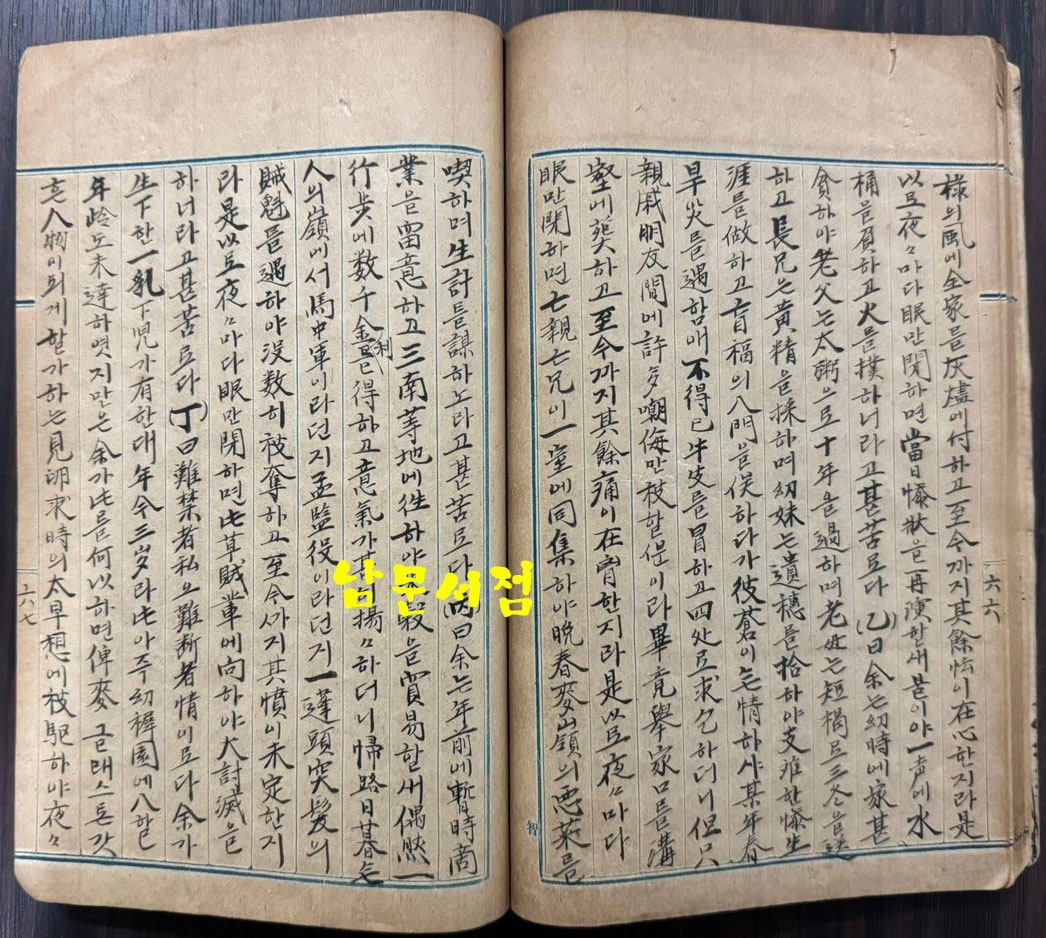 樣의風에全家를灰燼에付하고至今까지其餘怯이在心한지라是
以로夜々마다眼만閉하면當日慘狀을再演할새불이야一声에水
桶을負하고火를撲하너라고甚苦로다(乙)曰余는幼時에家甚
貧하야老父는太粥으로十年을過하며老母는短褐로三冬을送
하고長兄은黃精을採하며幼妹는遺穗를拾하야支離한慘生
涯를做하고盲福의入門을俟하다가彼蒼이無情하샤某年春
旱災를遇함애不得已牛皮를冒하고四処로求乞하더니但只
親戚朋友間에許多嘲侮만被할뿐이라畢竟擧家口를溝
壑에葬하고至今까지其餘痛이在胷한지라是以로夜々마다
眠만閉하면亡親亡兄이一室에同集하야晩春麥嶺의惡菜를
六六
智
喫하며生計를謀하노라고甚苦로다(丙)曰余는年前에暫時商
業을留意하고三南等地에徃하야米穀을貿易할새偶然一
行步에数千金을利得하고意氣가甚揚々하더니帰路日暮無
人의嶺에서馬中軍이라던지孟監役이라던지一蓬頭突髮의
賊魁를遇하야沒数히被奪하고至今까지其憤이未定한지
라是以로夜々마다眼만閉하면此草賊輩에向하야大討滅을
하너라고甚苦로다(丁)曰難禁者私요難断者情이로다余가
生下한一乳下児가有한대年今三岁라此아주幼穉園에入할
年齡도未達하엿지만은余가此를何以하면俾麥 글래스톤갓
흔人物이되게할가하는見卵求時의太早想에被駆하야夜々
六八七
납문서점